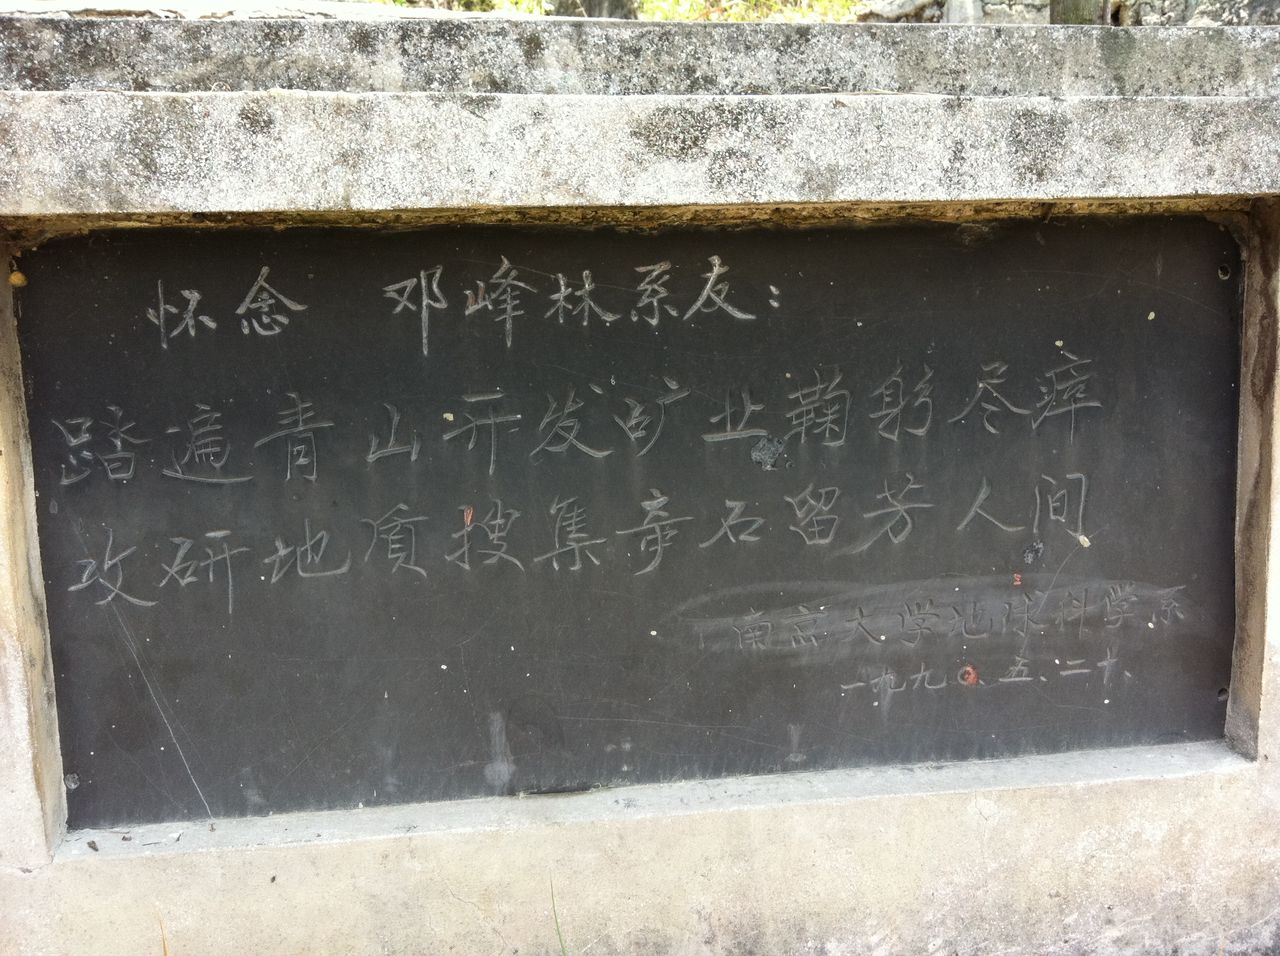 怀念 邓峰林系友：
踏遍青山开发矿业鞠躬尽瘁
攻研地质搜集奇石留芳人间
南京大学地球科学系
一九九〇、五、二十、